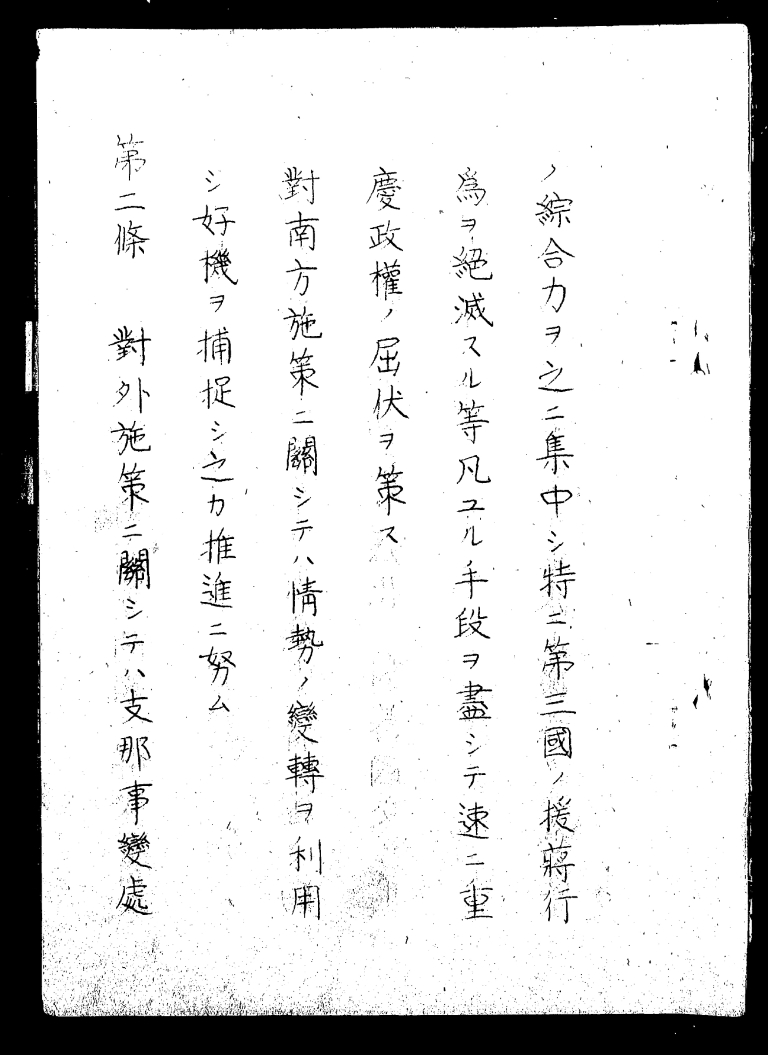 ノ綜合力ヲ之ニ集中シ特ニ第三國ノ援蔣行
爲ヲ絕滅スル等凡ユル手段ヲ盡シテ速ニ重
慶政權ノ屈伏ヲ策ス
對南方施策ニ關シテハ情勢ノ變轉ヲ利用
シ好機ヲ捕捉シ之カ推進ニ努ム
第二條　對外施策ニ關シテハ支那事變處